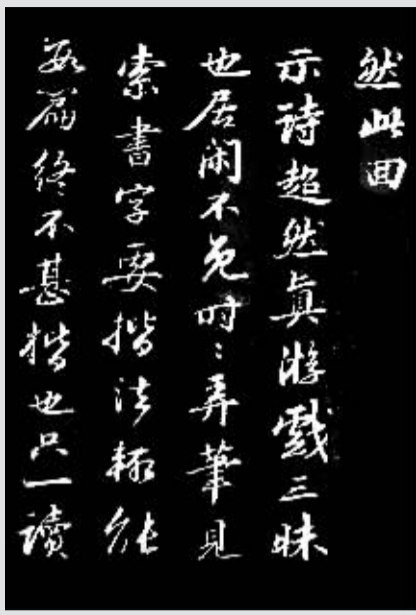 然此回
示詩超然真游戲三昧
也居閑不免時〻弄筆見
索書字要楷法輒往
數篇終不甚楷也只一讀